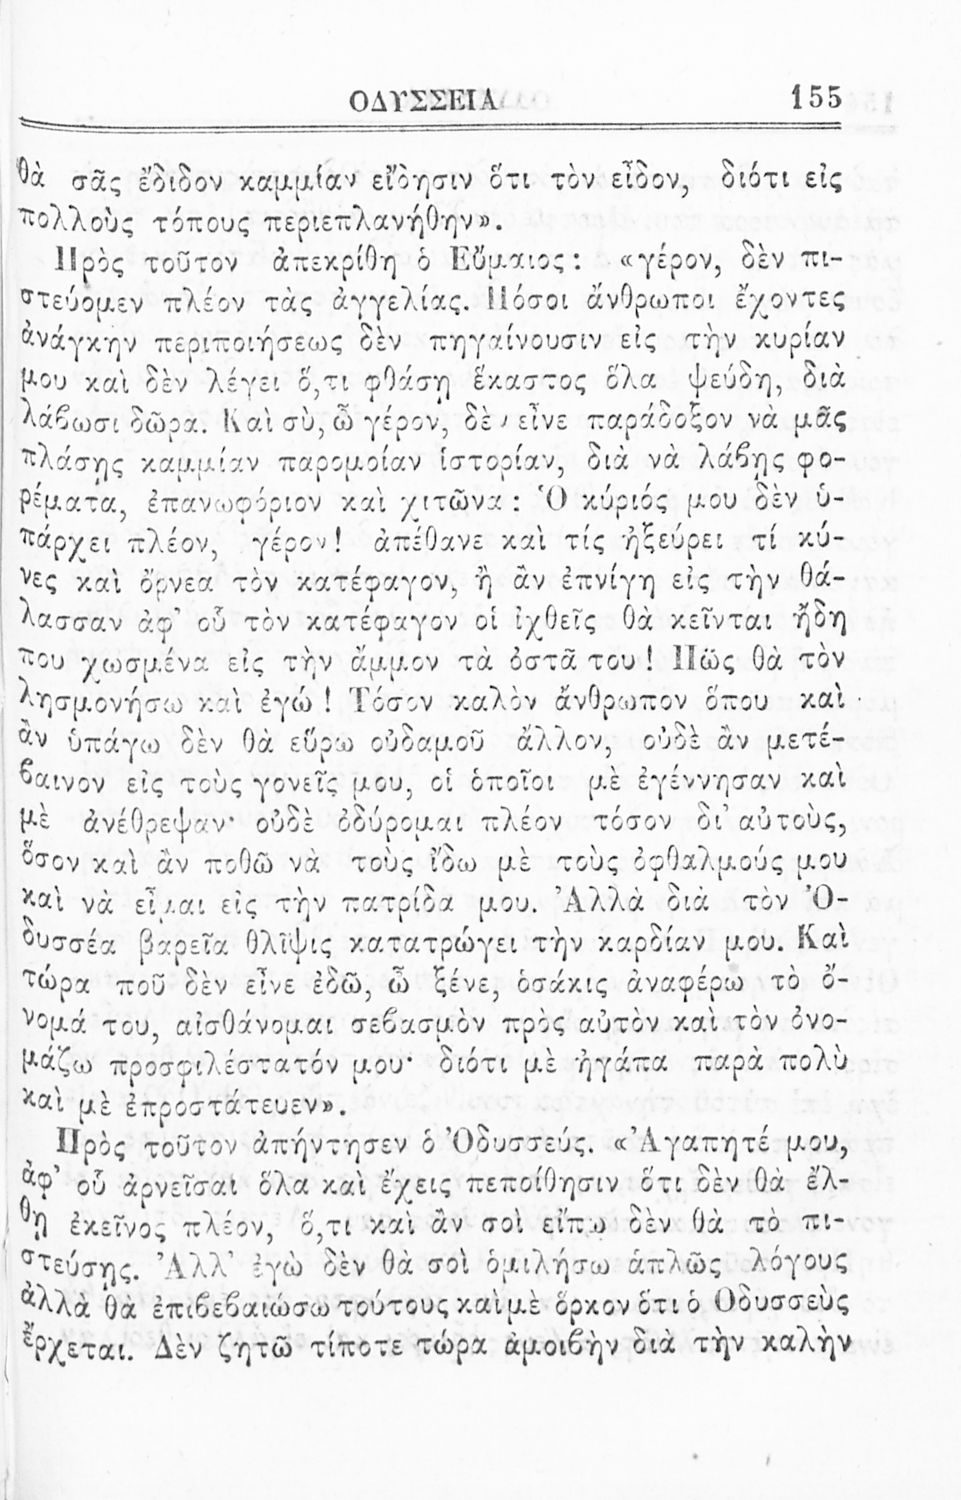 ΟΔΥΣΣΕΙΑ 155
θὰ σᾶς ἔδιδον καμμίαν εἴδησιν ὅτι τὸν εἶδον, διότι εἰς
πολλοὺς τόπους περιεπλανήθην».
Πρὸς τοῦτον ἀπεκρίθη ὁ Εὔμαιος: «γέρον, δὲν πι-
στεύομεν πλέον τὰς ἀγγελίας. Πόσοι ἄνθρωποι ἔχοντες
ἀνάγκην περιποιήσεως δὲν πηγαίνουσιν εἰς τὴν κυρίαν
μου καὶ δὲν λέγει ὅ,τι φθάσῃ ἕκαστος ὅλα ψεύδη, διὰ
λάβωσι δῶρα. Καὶ σὺ, ὦ γέρον, δὲν εἶνε παράδοξον νὰ μᾶς
πλάσῃς καμμίαν παρομοίαν ἱστορίαν, διὰ νὰ λάβῃς φο-
ρέματα, ἐπανωφόριον καὶ χιτῶνα: Ὁ κύριός μου δὲν ὑ-
πάρχει πλέον, γέρον! ἀπέθανε καὶ τίς ἠξεύρει τί κύ-
νες καὶ ὄρνεα τὸν κατέφαγον, ἢ ἂν ἐπνίγη εἰς τὴν θά-
λασσαν ἀφ' οὗ τὸν κατέφαγον οἱ ἰχθεῖς θὰ κεῖνται ἤδη
που χωσμένα εἰς τὴν ἄμμον τὰ ὀστᾶ του! Πῶς θὰ τὸν
λησμονήσω καὶ ἐγώ! Τόσον καλὸν ἄνθρωπον ὅπου καὶ
ἂν ὑπάγω δὲν θὰ εὕρω οὐδαμοῦ ἄλλον, οὐδὲ ἂν μετέ-
βαινον εἰς τοὺς γονεῖς μου, οἱ ὁποῖοι μὲ ἐγέννησαν καὶ
μὲ ἀνέθρεψαν· οὐδὲ ὀδύρομαι πλέον τόσον δι' αὐτοὺς,
ὅσον καὶ ἂν ποθῶ νὰ τοὺς ἴδω μὲ τοὺς ὀφθαλμούς μου
καὶ νὰ εἶμαι εἰς τὴν πατρίδα μου. Ἀλλὰ διὰ τὸν Ὀ-
δυσσέα βαρεῖα θλῖψις κατατρώγει τὴν καρδίαν μου. Καὶ
τώρα ποῦ δὲν εἶνε ἐδῶ, ὦ ξένε, ὁσάκις ἀναφέρω τὸ ὄ-
νομά του, αἰσθάνομαι σεβασμὸν πρὸς αὐτὸν καὶ τὸν ὀνο-
μάζω προσφιλέστατόν μου· διότι μὲ ἠγάπα παρὰ πολὺ
καὶ μὲ ἐπροστάτευεν».
Πρὸς τοῦτον ἀπήντησεν ὁ Ὀδυσσεύς. «Ἀγαπητέ μου,
ἀφ' οὗ ἀρνεῖσαι ὅλα καὶ ἔχεις πεποίθησιν ὅτι δὲν θὰ ἔλ-
θῃ ἐκεῖνος πλέον, ὅ,τι καὶ ἂν σοὶ εἴπω δὲν θὰ τὸ πι-
στεύσῃς. Ἀλλ' ἐγὼ δὲν θὰ σοὶ ὁμιλήσω ἁπλῶς λόγους
ἀλλὰ θὰ ἐπιβεβαιώσω τούτους καὶ μὲ ὅρκον ὅτι ὁ Ὀδυσσεὺς
ἔρχεται. Δὲν ζητῶ τίποτε τώρα ἀμοιβὴν διὰ τὴν καλὴν